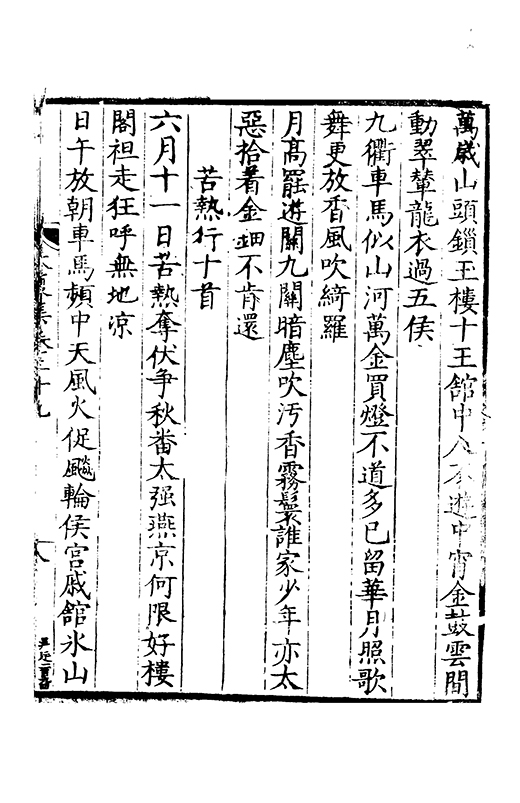 萬歲山頭鎖玉樓十王館中人不遊中宵金鼓雲間
動翠輦龍衣過五侯
九衢車馬似山河萬金買燈不道多已留華月照歌
舞更放香風吹綺羅
月高罷遊關九關暗塵吹汚香霧鬟誰家少年亦太
惡拾着金鈿不肯還
苦熱行十首
六月十一日苦熱奪伏争秋畨太强燕京何限好樓
閣袒走狂呼無地凉
日午放朝車馬頻中天風火促飈輪侯宫戚館氷山
集卷三十九